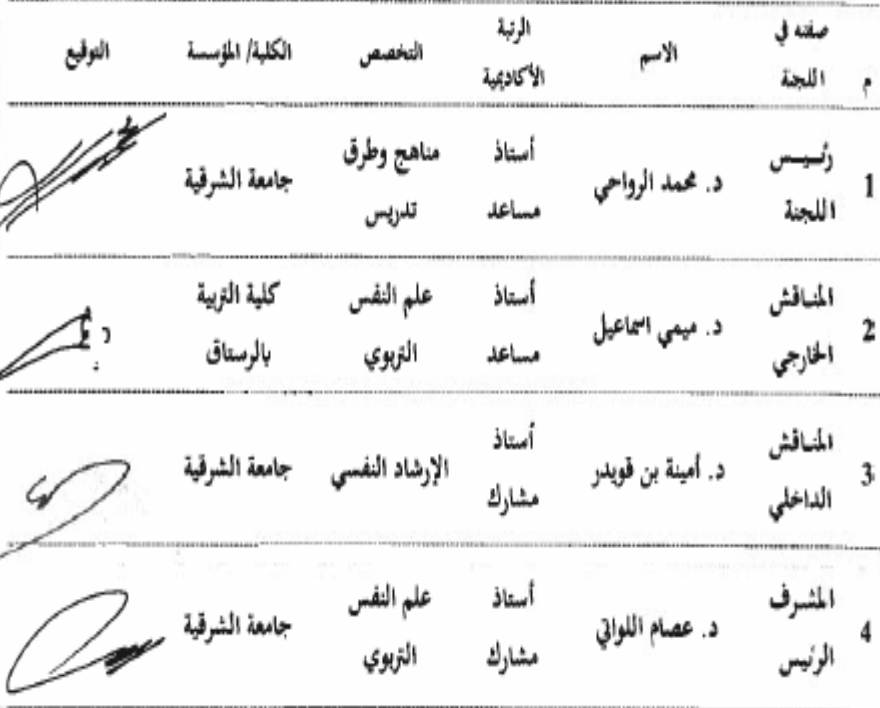 م صفته في اللجنة الاسم الرتبة الأكاديمية التخصص الكلية/ المؤسسة التوقيع
1 رئيس اللجنة د. محمد الرواحي أستاذ مساعد مناهج وطرق تدريس جامعة الشرقية
2 المناقش الخارجي د. ميمي اسماعيل أستاذ مساعد علم النفس التربوي كلية التربية بالرستاق
3 المناقش الداخلي د. أمينة بن قويدر أستاذ مشارك الإرشاد النفسي جامعة الشرقية
4 المشرف الرئيس د. عصام اللواتي أستاذ مشارك علم النفس التربوي جامعة الشرقية